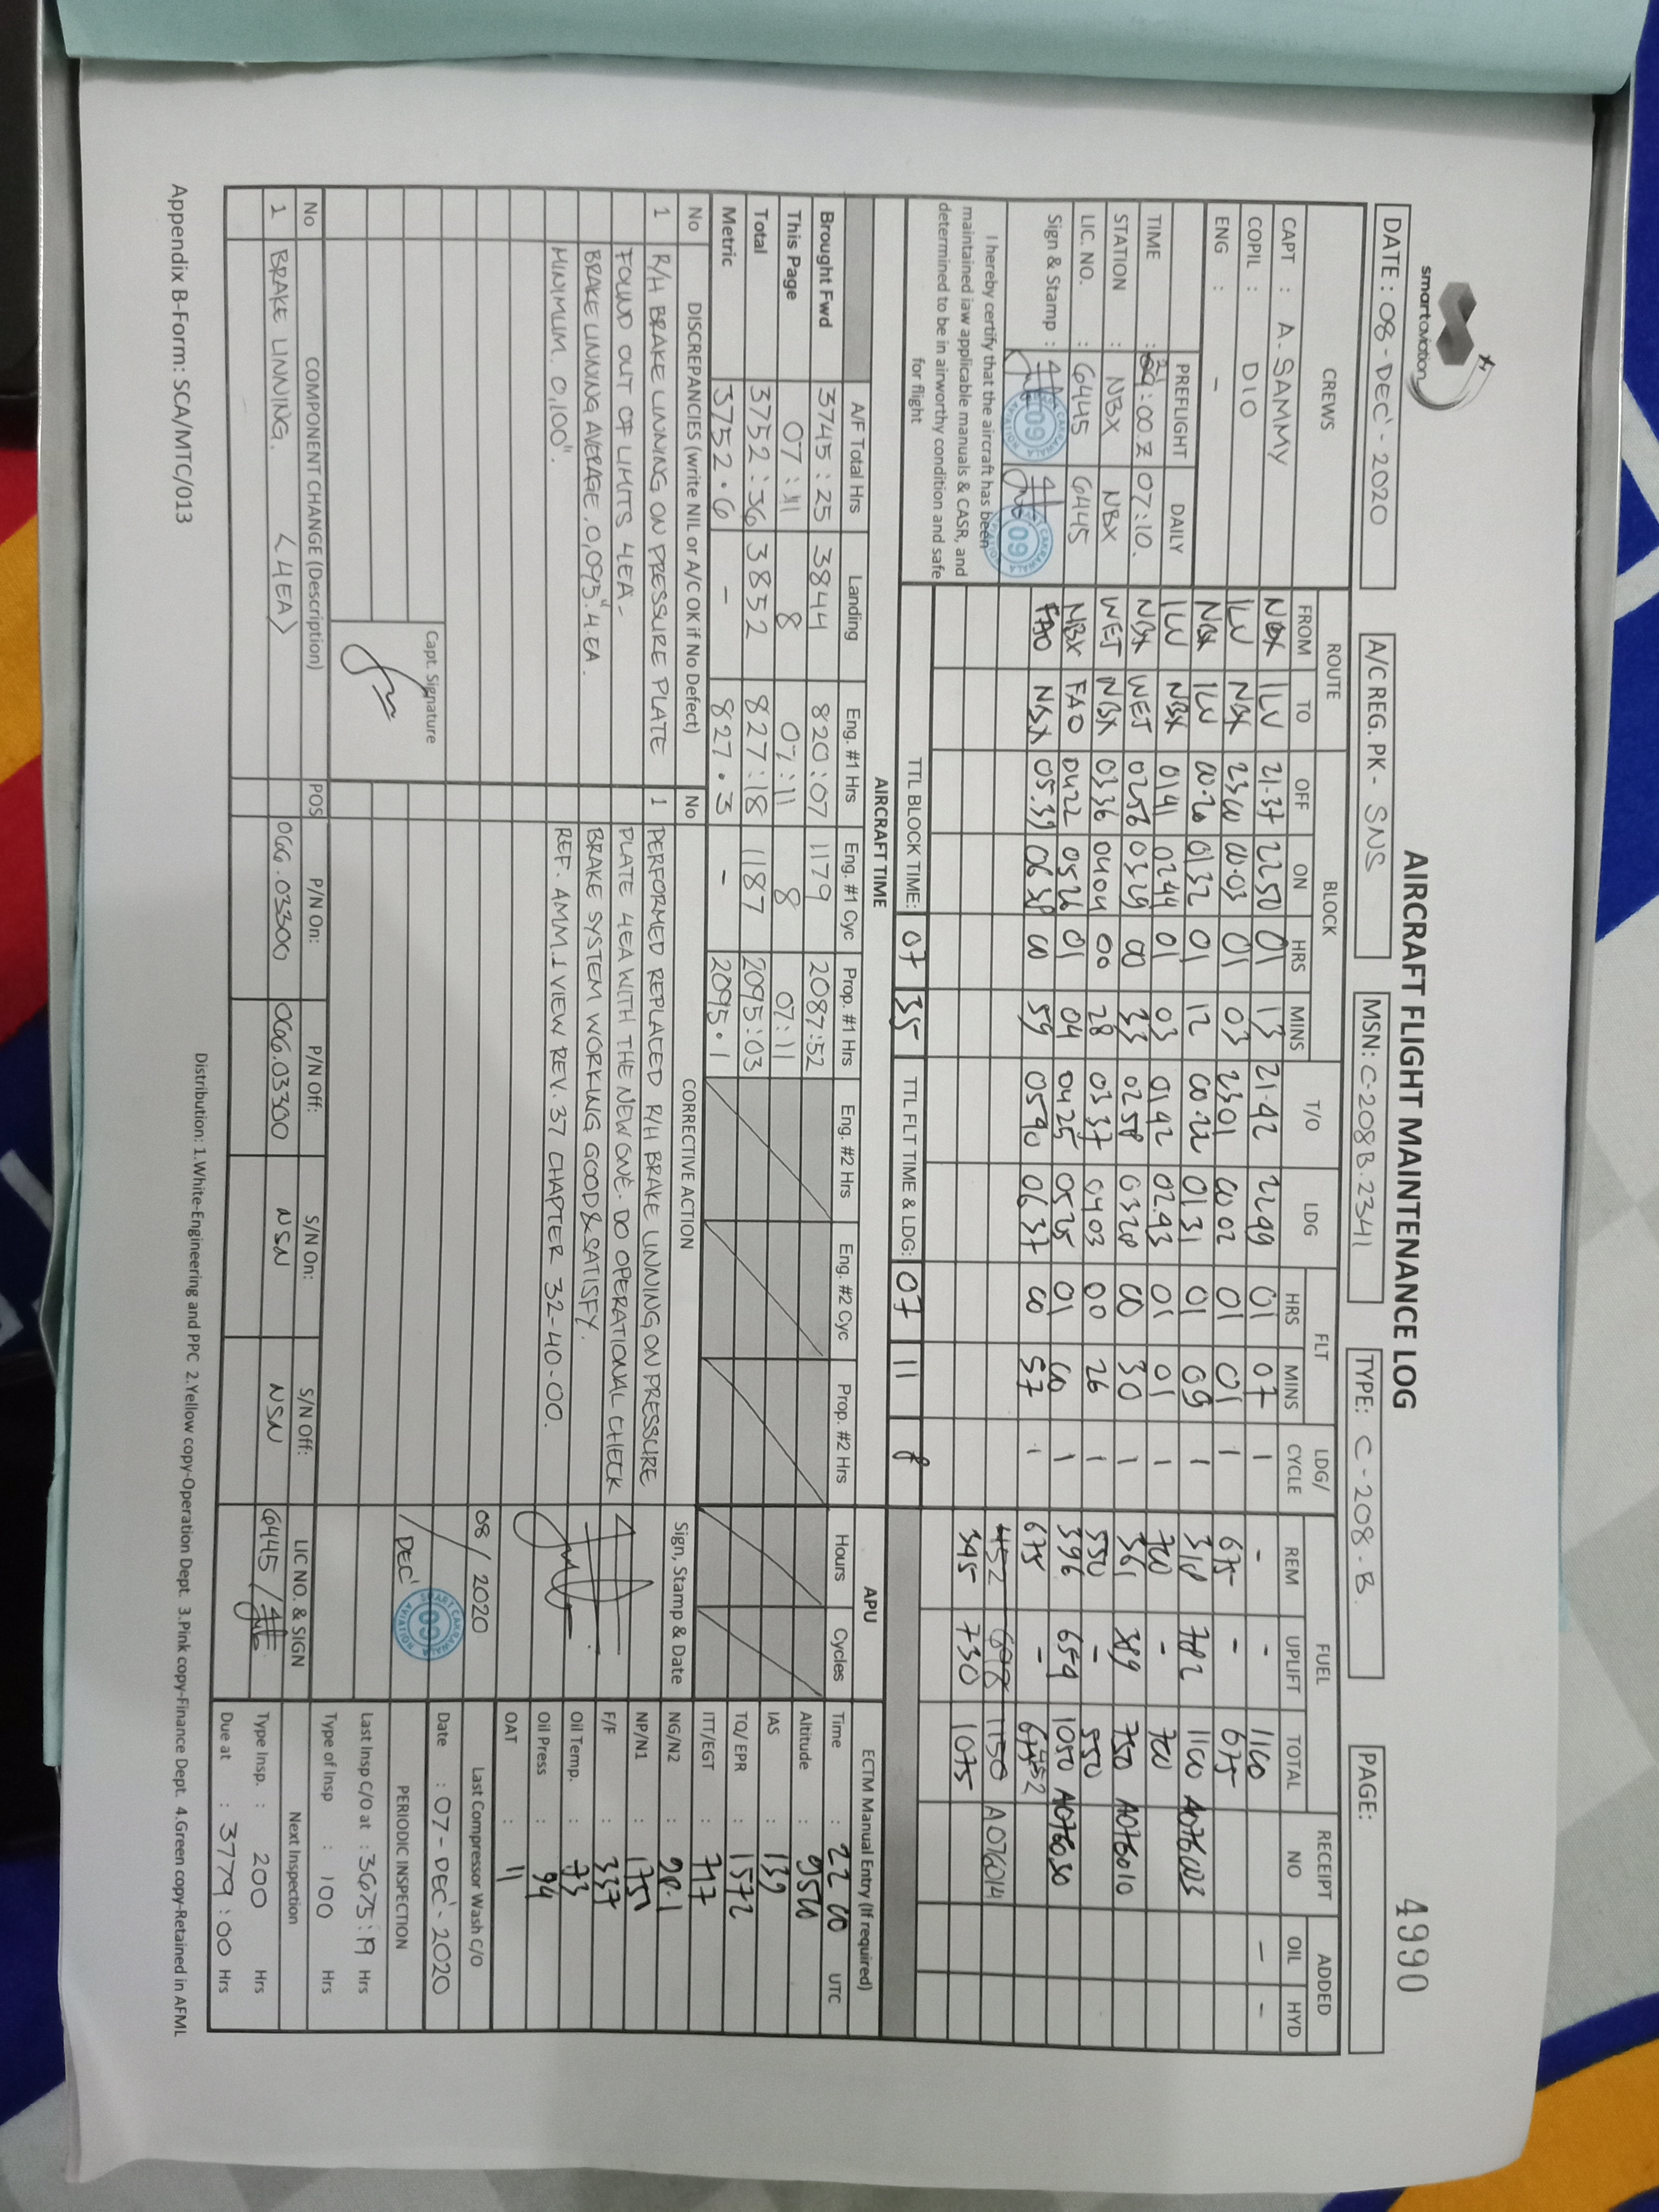 smartaviation
AIRCRAFT FLIGHT MAINTENANCE LOG
4990
DATE : 08-DEC'-2020
A/C REG. PK - SNS
MSN: C-208B.2341
TYPE: C-208.B.
PAGE:
CREWS ROUTE BLOCK T/O LDG FLT LDG/ CYCLE FUEL RECEIPT NO ADDED
FROM TO OFF ON HRS MINS HRS MINS REM UPLIFT TOTAL OIL HYD
CAPT : A. SAMMY
NBX ILU 21.37 2250 01 13 21.42 2249 01 07 1 - - 1100 - -
COPIL : DIO
ILU NBX 2300 00.03 01 03 2301 0002 01 01 1 675 - 675
ENG : -
NBX ILU 00.20 0132 01 12 00.22 0131 01 09 1 318 782 1100 A076003
PREFLIGHT DAILY
ILU NBX 0141 0244 01 03 0142 02.43 01 01 1 700 - 700
TIME : 21:00 Z 07:10.
NBX WET 0256 0329 00 33 0258 0328 00 30 1 361 389 750 A076010
STATION : NBX NBX
WET NBX 0336 0404 00 28 0337 0403 00 26 1 550 - 550
LIC. NO. : 6445 6445
NBX FAO 0422 0526 01 04 0425 0525 01 00 1 396 654 1050 A076030
Sign & Stamp :
FAO NBX 05.39 0638 00 59 0540 0637 00 57 1 675 -
452 698 1150 A076014
345 730 1075
I hereby certify that the aircraft has been
maintained iaw applicable manuals & CASR, and
determined to be in airworthy condition and safe
for flight
TTL BLOCK TIME: 07 35 TTL FLT TIME & LDG: 07 11 8
AIRCRAFT TIME APU ECTM Manual Entry (If required)
A/F Total Hrs Landing Eng. #1 Hrs Eng. #1 Cyc Prop. #1 Hrs Eng. #2 Hrs Eng. #2 Cyc Prop. #2 Hrs Hours Cycles
Brought Fwd 3745:25 3844 820:07 1179 2087:52
This Page 07:11 8 07:11 8 07:11
Total 3752:36 3852 827:18 1187 2095:03
Metric 3752.6 - 827.3 - 2095.1
Time : 22 00 UTC
Altitude : 9500
IAS : 139
TQ/ EPR : 1572
ITT/EGT : 717
NG/N2 : 98.1
NP/N1 : 1751
F/F : 337
Oil Temp. : 73
Oil Press : 94
OAT : 11
No DISCREPANCIES (write NIL or A/C OK if No Defect) No CORRECTIVE ACTION Sign, Stamp & Date
1 R/H BRAKE LINNING ON PRESSURE PLATE
FOUND OUT OF LIMITS 4EA-
BRAKE LINNING AVERAGE. 0,095" 4.EA.
MINIMUM. 0,100".
1 PERFORMED REPLACED R/H BRAKE LINNING ON PRESSURE
PLATE 4EA WITH THE NEW ONE. DO OPERATIONAL CHECK
BRAKE SYSTEM WORKING GOOD & SATISFY.
REF. AMM.1 VIEW REV. 37 CHAPTER 32-40-00.
08/2020
/DEC'
Capt. Signature
Last Compressor Wash C/O
Date : 07-DEC'-2020
PERIODIC INSPECTION
Last Insp C/O at : 3675:19 Hrs
Type of Insp : 100 Hrs
Next Inspection
Type Insp. : 200 Hrs
Due at : 3779:00 Hrs
No COMPONENT CHANGE (Description) POS P/N On: P/N Off: S/N On: S/N Off: LIC NO. & SIGN
1 BRAKE LINNING. <4EA> 066.03300 066.03300 NSN NSN 6445/
Distribution: 1.White-Engineering and PPC 2.Yellow copy-Operation Dept. 3.Pink copy-Finance Dept. 4.Green copy-Retained in AFML
Appendix B-Form: SCA/MTC/013